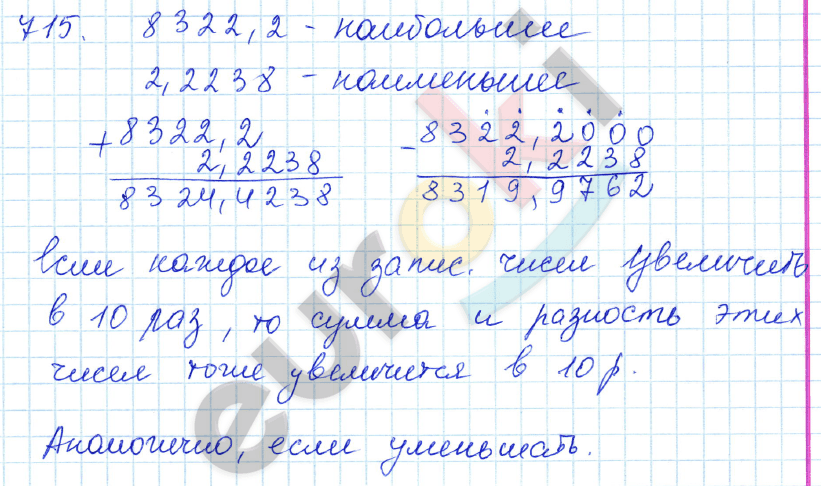 715. 8322,2 - наибольшее
2,2238 - наименьшее
+ 8322,2
2,2238
8324,4238
- 8322,2000
2,2238
8319,9762
Если каждое из запис. чисел увеличить
в 10 раз, то сумма и разность этих
чисел тоже увеличится в 10 р.
Аналогично, если уменьшать.
euroki